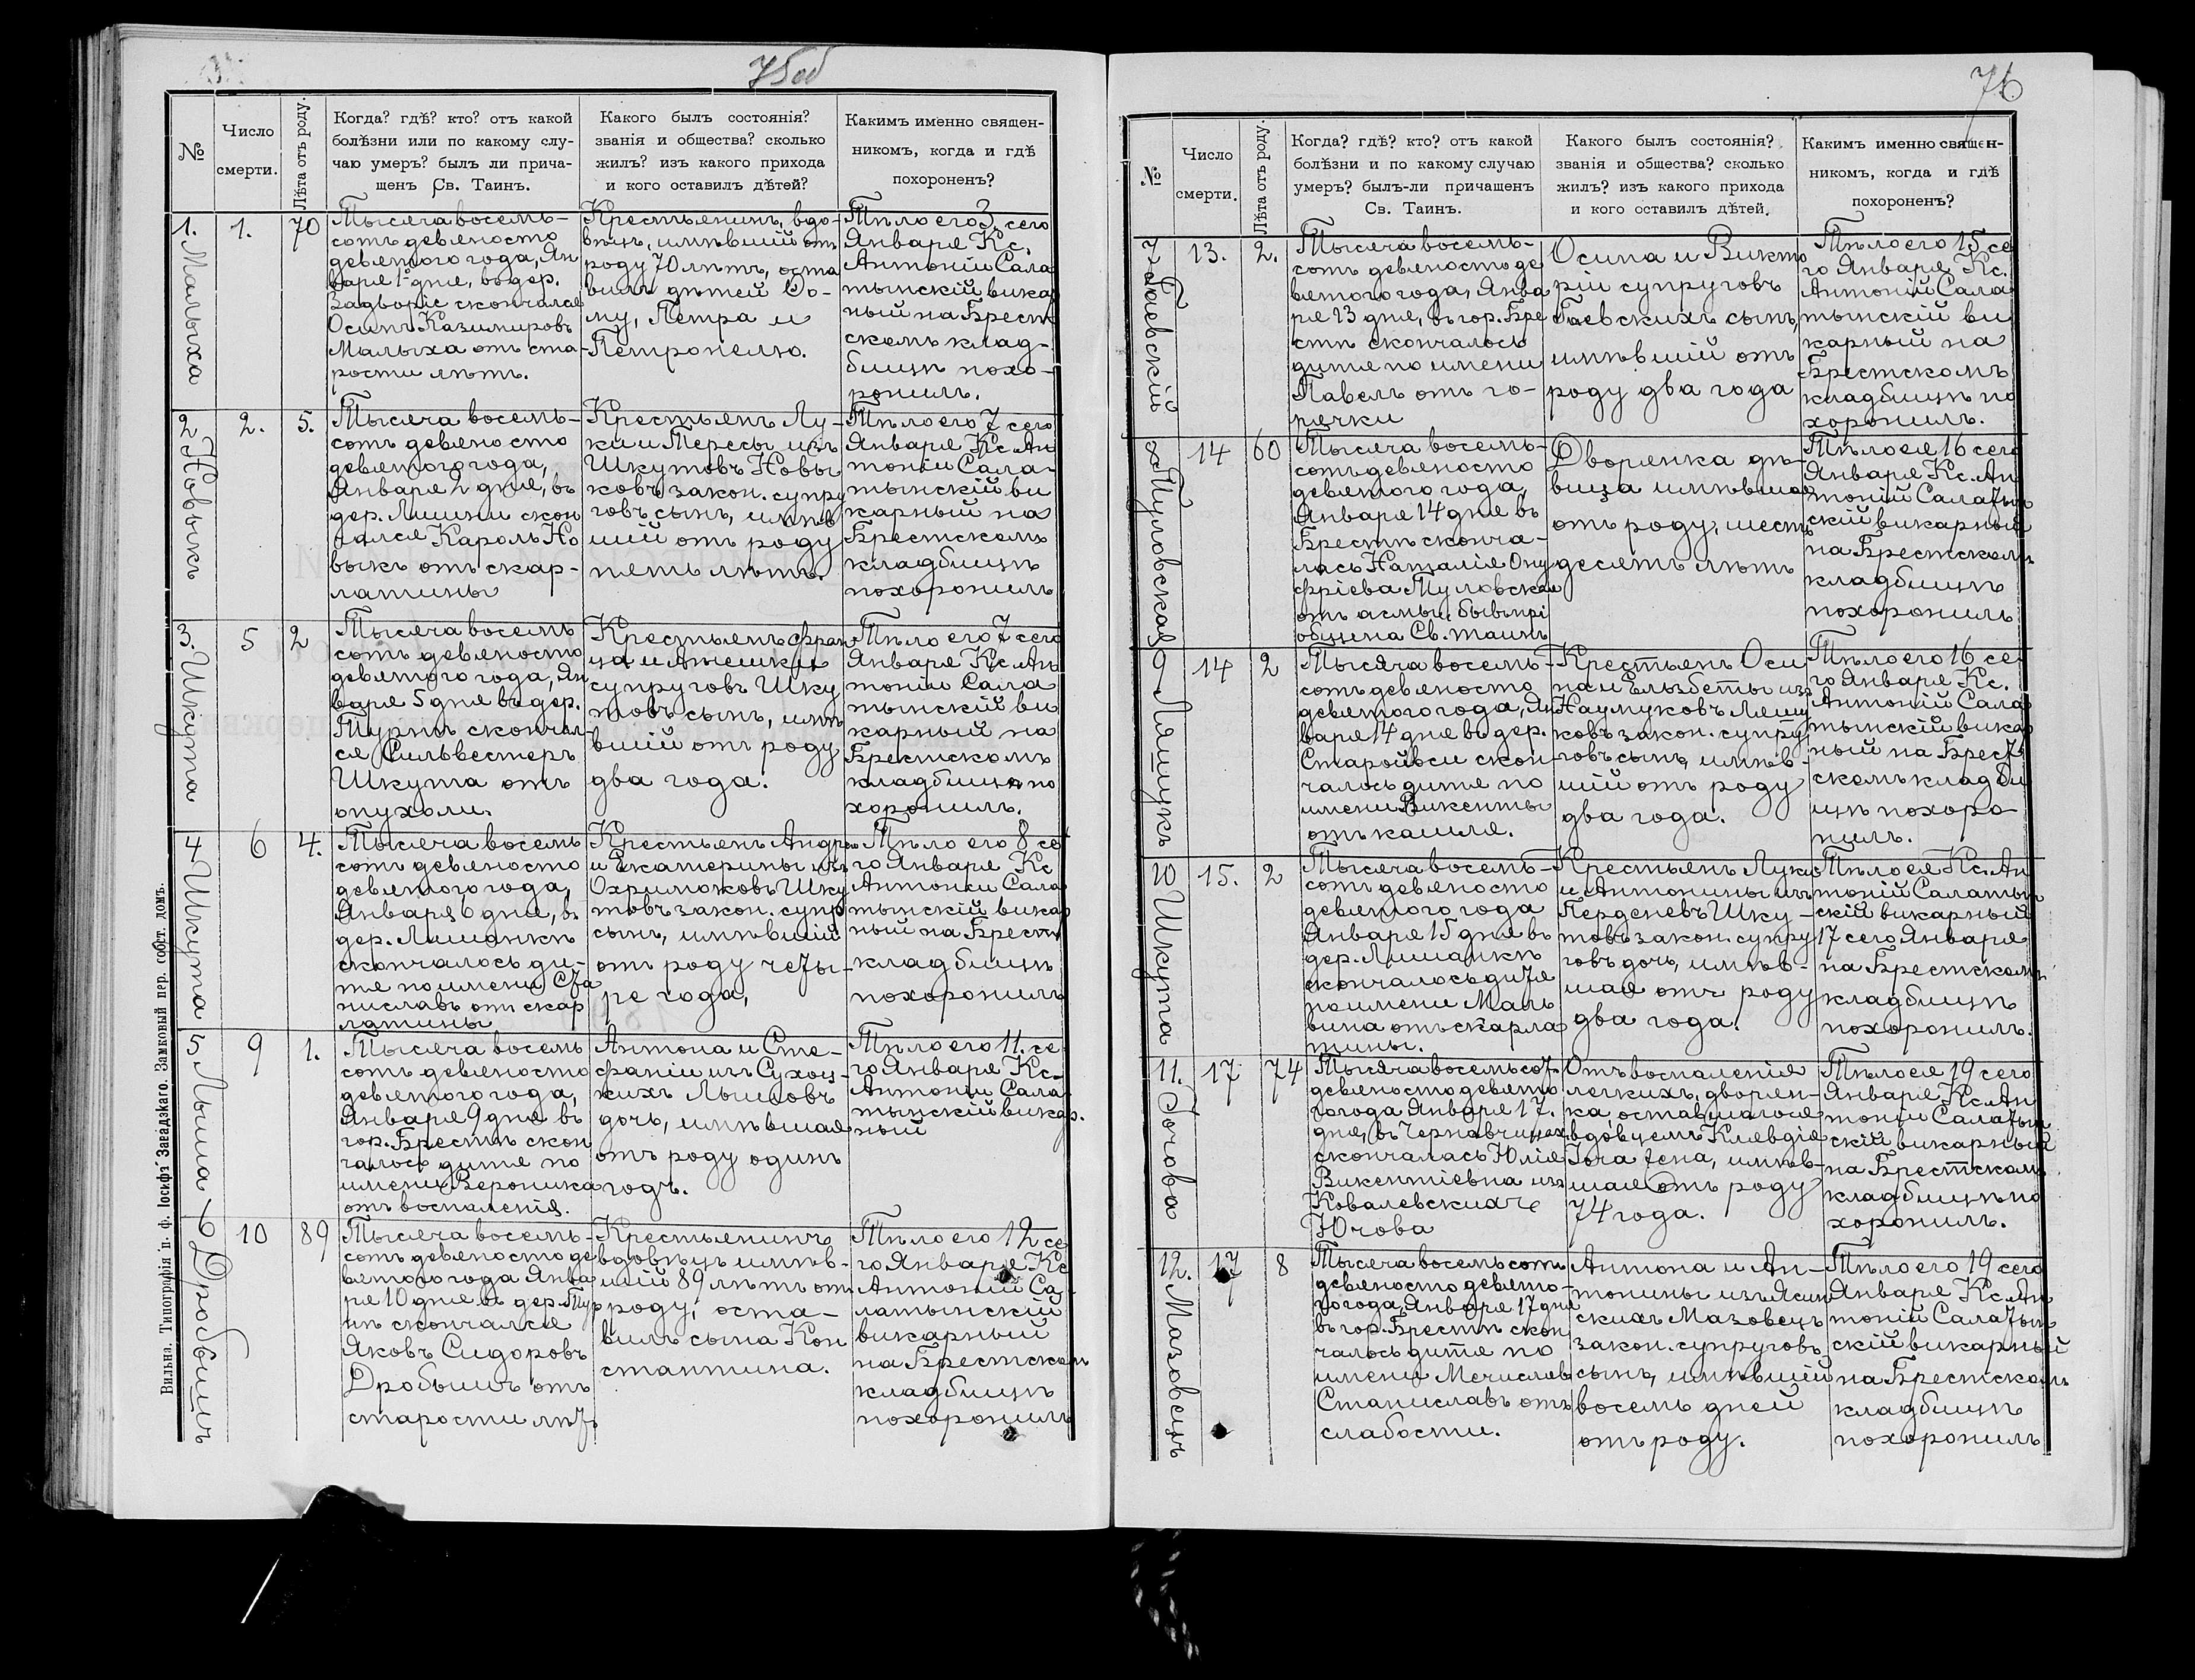 75об
№
Число
смерти.
Лѣта отъ роду.
Когда? гдѣ? кто? отъ какой
болѣзни или по какому слу-
чаю умеръ? былъ ли прича-
щенъ Св. Таинъ.
Какого былъ состоянія?
званія и общества? сколько
жилъ? изъ какого прихода
и кого оставилъ дѣтей?
Какимъ именно священ-
никомъ, когда и гдѣ
похороненъ?
1. Малыха
1.
70
Тысяча восемь-
сотъ девяносто
девятого года, Ян
варя 1го дня, въ дер.
Задворіе скончался
Осипъ Казимировъ
Малыха отъ ста-
рости лѣтъ.
Крестьянинъ, вдо-
вецъ, имѣвшій отъ
роду 70 лѣтъ, оста
вилъ дѣтей Ѳо-
му, Петра и
Петронелю.
Тѣло его 3 сего
Января Кс.
Антоній Сала
тынскій викар
ный на Брест
скомъ клад-
бищѣ похо-
ронилъ.
2 Новыкъ
2.
5.
Тысяча восемь-
сотъ девяносто
девятого года,
Января 2 дня, въ
дер. Лищики скон
чался Кароль Но
выкъ отъ скар-
латины
Крестьянъ Лу-
ки и Тересы изъ
Шкутовъ Новы
ковъ закон. супру
говъ сынъ, имѣв
шій отъ роду
пять лѣтъ.
Тѣло его 7 сего
Января Кс. Ан
тоній Сала-
тынскій ви
карный на
Брестскомъ
кладбищѣ
похоронилъ
3. Шкута
5
2
Тысяча восемь
сотъ девяносто
девятого года, Ян
варя 5 дня въ дер.
Турнѣ скончал-
ся Сильвестеръ
Шкута отъ
опухоли.
Крестьянъ Фран
ца и Агнешки
супруговъ Шку
товъ сынъ, имѣ
вшій отъ роду
два года.
Тѣло его 7 сего
Января Кс. Ан
тоній Сала
тынскій ви
карный на
Брестскомъ
кладбищѣ по
хоронилъ.
4 Шкута
6
4.
Тысяча восемь
сотъ девяносто
девятого года,
Января 6 дня, въ
дер. Лищанкѣ
скончалось ди-
тя по имени Ста
ниславъ отъ скар
латины
Крестьянъ Андрея
и Екатерины изъ
Охримюковъ Шку
товъ закон. супр
сынъ, имѣвшій
отъ роду четы-
ре года,
Тѣло его 8 се
го Января Кс
Антоній Сала
тынскій викар
ный на Брест
кладбищѣ
похоронилъ
5 Лыша
9
1.
Тысяча восемь
сотъ девяносто
девятого года,
Января 9 дня въ
гор. Брестѣ скон
чалось дитя по
имени Вероника
отъ воспаленія.
Антона и Сте-
фаніи изъ Сухоц-
кихъ Лышовъ
дочь, имѣвшая
отъ роду одинъ
годъ.
Тѣло его 11. се
го Января Кс.
Антоній Сала-
тынскій викар.
ный
6 Дробышъ
10
89
Тысяча восемь-
сотъ девяносто де
вятого года Янва
ря 10 дня въ дер. Тур
нѣ скончался
Яковъ Сидоровъ
Дробышъ отъ
старости лѣтъ
Крестьянинъ
вдовѣцъ имѣв-
шій 89 лѣтъ отъ
роду, оста-
вилъ сына Кон
стантина.
Тѣло его 12 се
го Января Кс
Антоній Са-
латынскій
викарный
на Брестскомъ
кладбищѣ
похоронилъ
Вильна. Типографія п. ф. Іосифъ Завадзкаго. Замковый пер. собст. домъ.
76
№
Число
смерти.
Лѣта отъ роду.
Когда? гдѣ? кто? отъ какой
болѣзни и по какому случаю
умеръ? былъ-ли причащенъ
Св. Таинъ.
Какого былъ состоянія?
званія и общества? сколько
жилъ? изъ какого прихода
и кого оставилъ дѣтей.
Какимъ именно священ-
никомъ, когда и гдѣ
похороненъ?
7 Гаевскій
13.
2.
Тысяча восемь-
сотъ девяносто де
вятого года, Янва
ря 13 дня, въ гор. Бре
стѣ скончалось
дитя по имени
Павелъ отъ го-
рячки
Осипа и Викто
ріи супруговъ
Гаевскихъ сынъ,
имѣвшій отъ
роду два года
Тѣло его 15 се
го Января Кс.
Антоній Сала
тынскій ви
карный на
Брестскомъ
кладбищѣ по
хоронилъ.
8 Туловская
14
60
Тысяча восемь-
сотъ девяносто
девятого года,
Января 14 дня въ
Брестѣ сконча-
лась Наталія Ону
фріева Туловская
отъ асмы, бывъ прі
общена Св. таинъ
Дворянка дѣ-
вица имѣвшая
отъ роду, шесть
десятъ лѣтъ
Тѣло ея 16 сего
Января Кс. Ан
тоній Салатын
скій викарный
на Брестскомъ
кладбищѣ
похоронилъ
9 Ляшукъ
14
2
Тысяча восемь-
сотъ девяносто
девятого года, Ян
варя 14 дня въ дер.
Старойвси скон
чалось дитя по
имени Викентій
отъ кашля.
Крестьянъ Оси
па и Ельзбеты изъ
Наумуковъ Ляшу
ковъ закон. супру
говъ сынъ, имѣв-
шій отъ роду
два года.
Тѣло его 16 се
го Января Кс.
Антоній Сала
тынскій викар
ный на Брест
скомъ кладби
щѣ похоро-
нилъ.
10 Шкута
15.
2
Тысяча восемь-
сотъ девяносто
девятого года
Января 15 дня въ
дер. Лищанкѣ
скончалось дитя
по имени Маль
вина отъ скарла
тины.
Крестьянъ Луки
и Антонины изъ
Перденевъ Шку-
товъ закон. супру
говъ дочь, имѣв-
шая отъ роду
два года.
Тѣло ея Кс. Ан
тоній Салатын
скій викарный
17 сего Января
на Брестскомъ
кладбищѣ
похоронилъ.
11. Югова
17
74
Тысяча восемьсот
девяносто девято
го года Января 17.
дня, въ Чернавчицах
скончалась Юлія
Викентіевна изъ
Ковалевскихъ
Югова
Отъ воспаленія
легкихъ, дворян-
ка, оставшагося
вдовцемъ Клевдія
Юга жена, имѣв-
шая отъ роду
74 года.
Тѣло ея 19 сего
Января Кс. Ан
тоній Салатын
скій викарный
на Брестскомъ
кладбищѣ по
хоронилъ.
12. Мазовецъ
17
8
Тысяча восемьсотъ
девяносто девято-
го года, Января 17 дня
въ гор. Брестѣ скон
чалось дитя по
имени Мечиславъ
Станиславъ отъ
слабости.
Антона и Ан-
тонины изъ Ясин
скихъ Мазовецъ
закон. супруговъ
сынъ, имѣвшій
восемь дней
отъ роду.
Тѣло его 19 сего
Января Кс. Ан
тоній Салатын
скій викарный
на Брестскомъ
кладбищѣ
похоронилъ